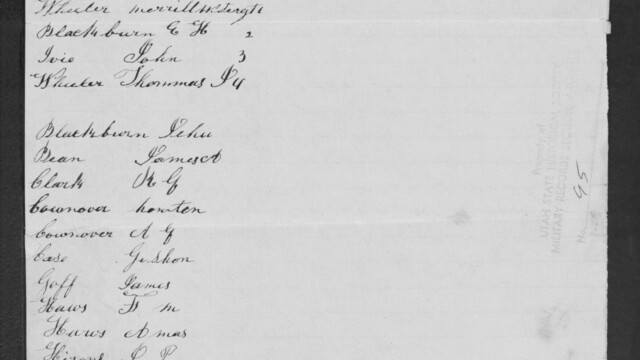 Wheeler Merrill W
Blackburn E H 2
Ivie John 3
Wheeler Thommas J 4
Blackburn Jehu
Bean James A
Clark R G
Cownover howten
Cownover A G
Case Gershon
Goff James
Haws F m
Haws Amas
Property of
UTAH STATE HISTORICAL
MILITARY RECORDS SECTION
No. 95